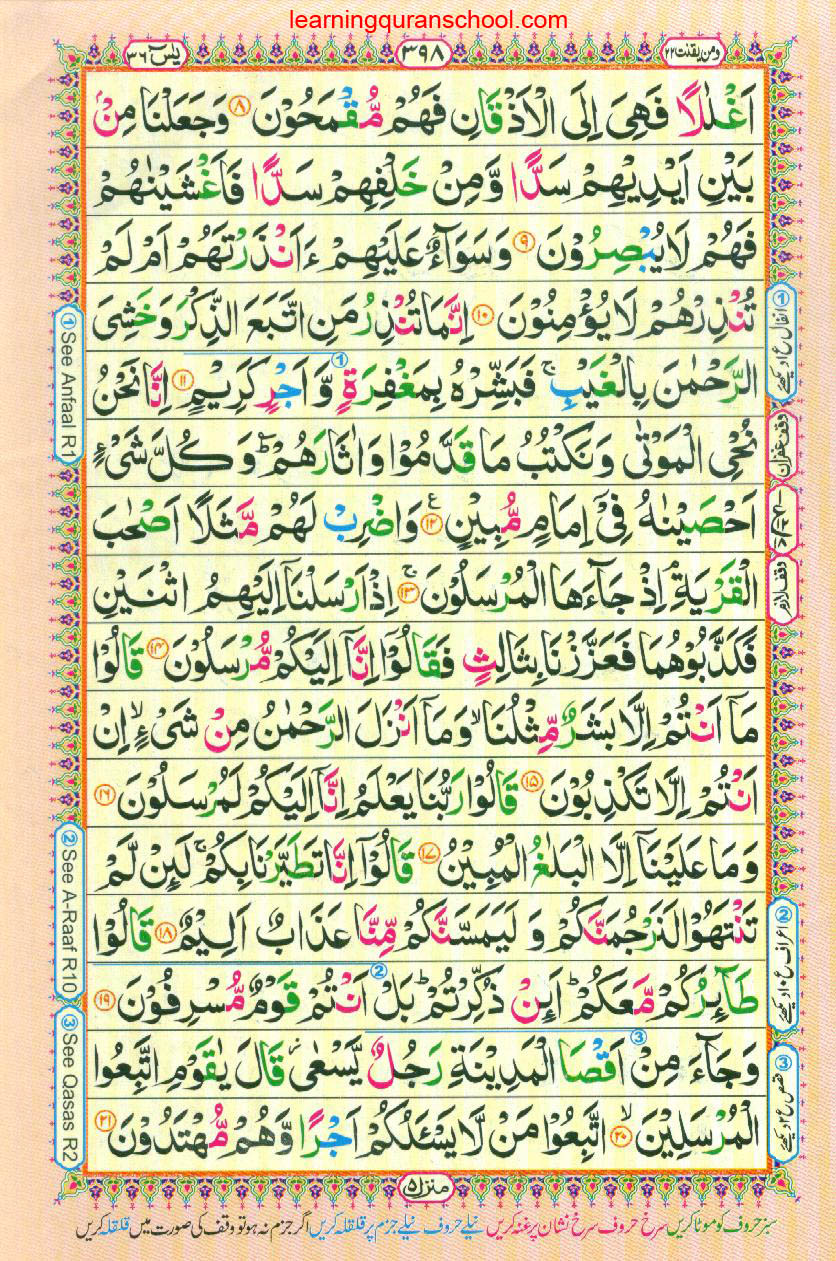 learningquranschool.com
ومن یقنت ۲۲
۳۹۸
یٰسٓ ۳۶
اَغْلٰلًا فَهِیَ اِلَى الْاَذْقَانِ فَهُمْ مُّقْمَحُوْنَ ۸ وَجَعَلْنَا مِنْۢ
بَیْنِ اَیْدِیْهِمْ سَدًّا وَّمِنْ خَلْفِهِمْ سَدًّا فَاَغْشَیْنٰهُمْ
فَهُمْ لَا یُبْصِرُوْنَ ۹ وَسَوَآءٌ عَلَیْهِمْ ءَاَنْذَرْتَهُمْ اَمْ لَمْ
تُنْذِرْهُمْ لَا یُؤْمِنُوْنَ ۱۰ اِنَّمَا تُنْذِرُ مَنِ اتَّبَعَ الذِّكْرَ وَخَشِیَ
الرَّحْمٰنَ بِالْغَیْبِ ۚ فَبَشِّرْهُ بِمَغْفِرَةٍ وَّاَجْرٍ كَرِیْمٍ ۱۱ اِنَّا نَحْنُ
نُحْیِ الْمَوْتٰى وَنَكْتُبُ مَا قَدَّمُوْا وَاٰثَارَهُمْ ؕ وَكُلَّ شَیْءٍ
اَحْصَیْنٰهُ فِیْۤ اِمَامٍ مُّبِیْنٍ ۱۲ وَاضْرِبْ لَهُمْ مَّثَلًا اَصْحٰبَ
الْقَرْیَةِ ۘ اِذْ جَآءَهَا الْمُرْسَلُوْنَ ۱۳ اِذْ اَرْسَلْنَاۤ اِلَیْهِمُ اثْنَیْنِ
فَكَذَّبُوْهُمَا فَعَزَّزْنَا بِثَالِثٍ فَقَالُوْۤا اِنَّاۤ اِلَیْكُمْ مُّرْسَلُوْنَ ۱۴ قَالُوْا
مَاۤ اَنْتُمْ اِلَّا بَشَرٌ مِّثْلُنَا ۙ وَمَاۤ اَنْزَلَ الرَّحْمٰنُ مِنْ شَیْءٍ ۙ اِنْ
اَنْتُمْ اِلَّا تَكْذِبُوْنَ ۱۵ قَالُوْا رَبُّنَا یَعْلَمُ اِنَّاۤ اِلَیْكُمْ لَمُرْسَلُوْنَ ۱۶
وَمَا عَلَیْنَاۤ اِلَّا الْبَلٰغُ الْمُبِیْنُ ۱۷ قَالُوْۤا اِنَّا تَطَیَّرْنَا بِكُمْ ۚ لَئِنْ لَّمْ
تَنْتَهُوْا لَنَرْجُمَنَّكُمْ وَلَیَمَسَّنَّكُمْ مِّنَّا عَذَابٌ اَلِیْمٌ ۱۸ قَالُوْا
طَآئِرُكُمْ مَّعَكُمْ ؕ اَئِنْ ذُكِّرْتُمْ ؕ بَلْ اَنْتُمْ قَوْمٌ مُّسْرِفُوْنَ ۱۹
وَجَآءَ مِنْ اَقْصَا الْمَدِیْنَةِ رَجُلٌ یَّسْعٰى قَالَ یٰقَوْمِ اتَّبِعُوا
الْمُرْسَلِیْنَ ۲۰ اتَّبِعُوْا مَنْ لَّا یَسْـَٔلُكُمْ اَجْرًا وَّهُمْ مُّهْتَدُوْنَ ۲۱
① See Anfaal R1
② See A-Raaf R10
③ See Qasas R2
① انفال ع ۱ دیکھئے
وقف غفران
وقف لازم
② اعراف ع ۱۰ دیکھئے
③ قصص ع ۲ دیکھئے
منزل ۵
سبز حروف کو موٹا کریں سرخ حروف سرخ نشان پر غنہ کریں نیلے حروف نیلے جزم پر قلقلہ کریں اگر جزم نہ ہو تو وقف کی صورت میں قلقلہ کریں